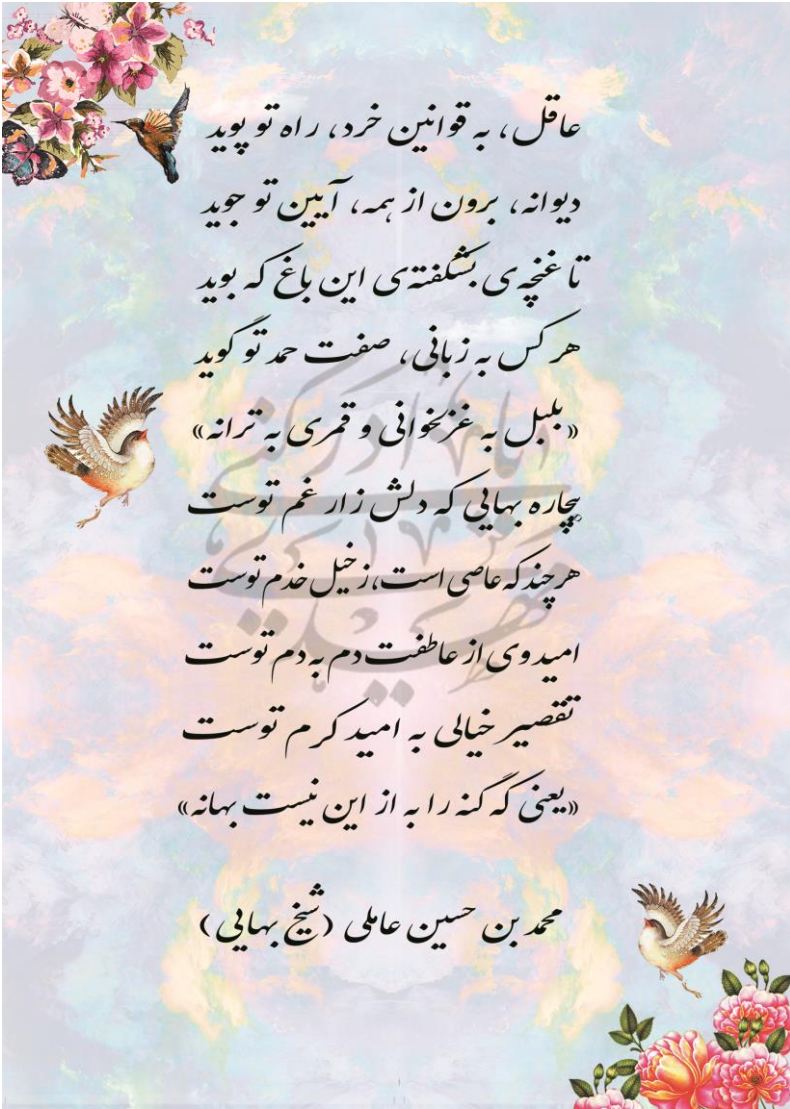 عاقل، به قوانین خرد، راه تو پوید
دیوانه، برون از همه، آیین تو جوید
تا غنچه‌ی بشکفته‌ی این باغ که بوید
هر کس به زبانی، صفت حمد تو گوید
«بلبل به غزلخوانی و قمری به ترانه»
بیچاره بهایی که دلش زار غم توست
هرچند که عاصی است، ز خیل خدم توست
امید وی از عاطفت دم به دم توست
تقصیر خیالی به امید کرم توست
«یعنی که گنه را به از این نیست بهانه»
محمد بن حسین عاملی (شیخ بهایی)